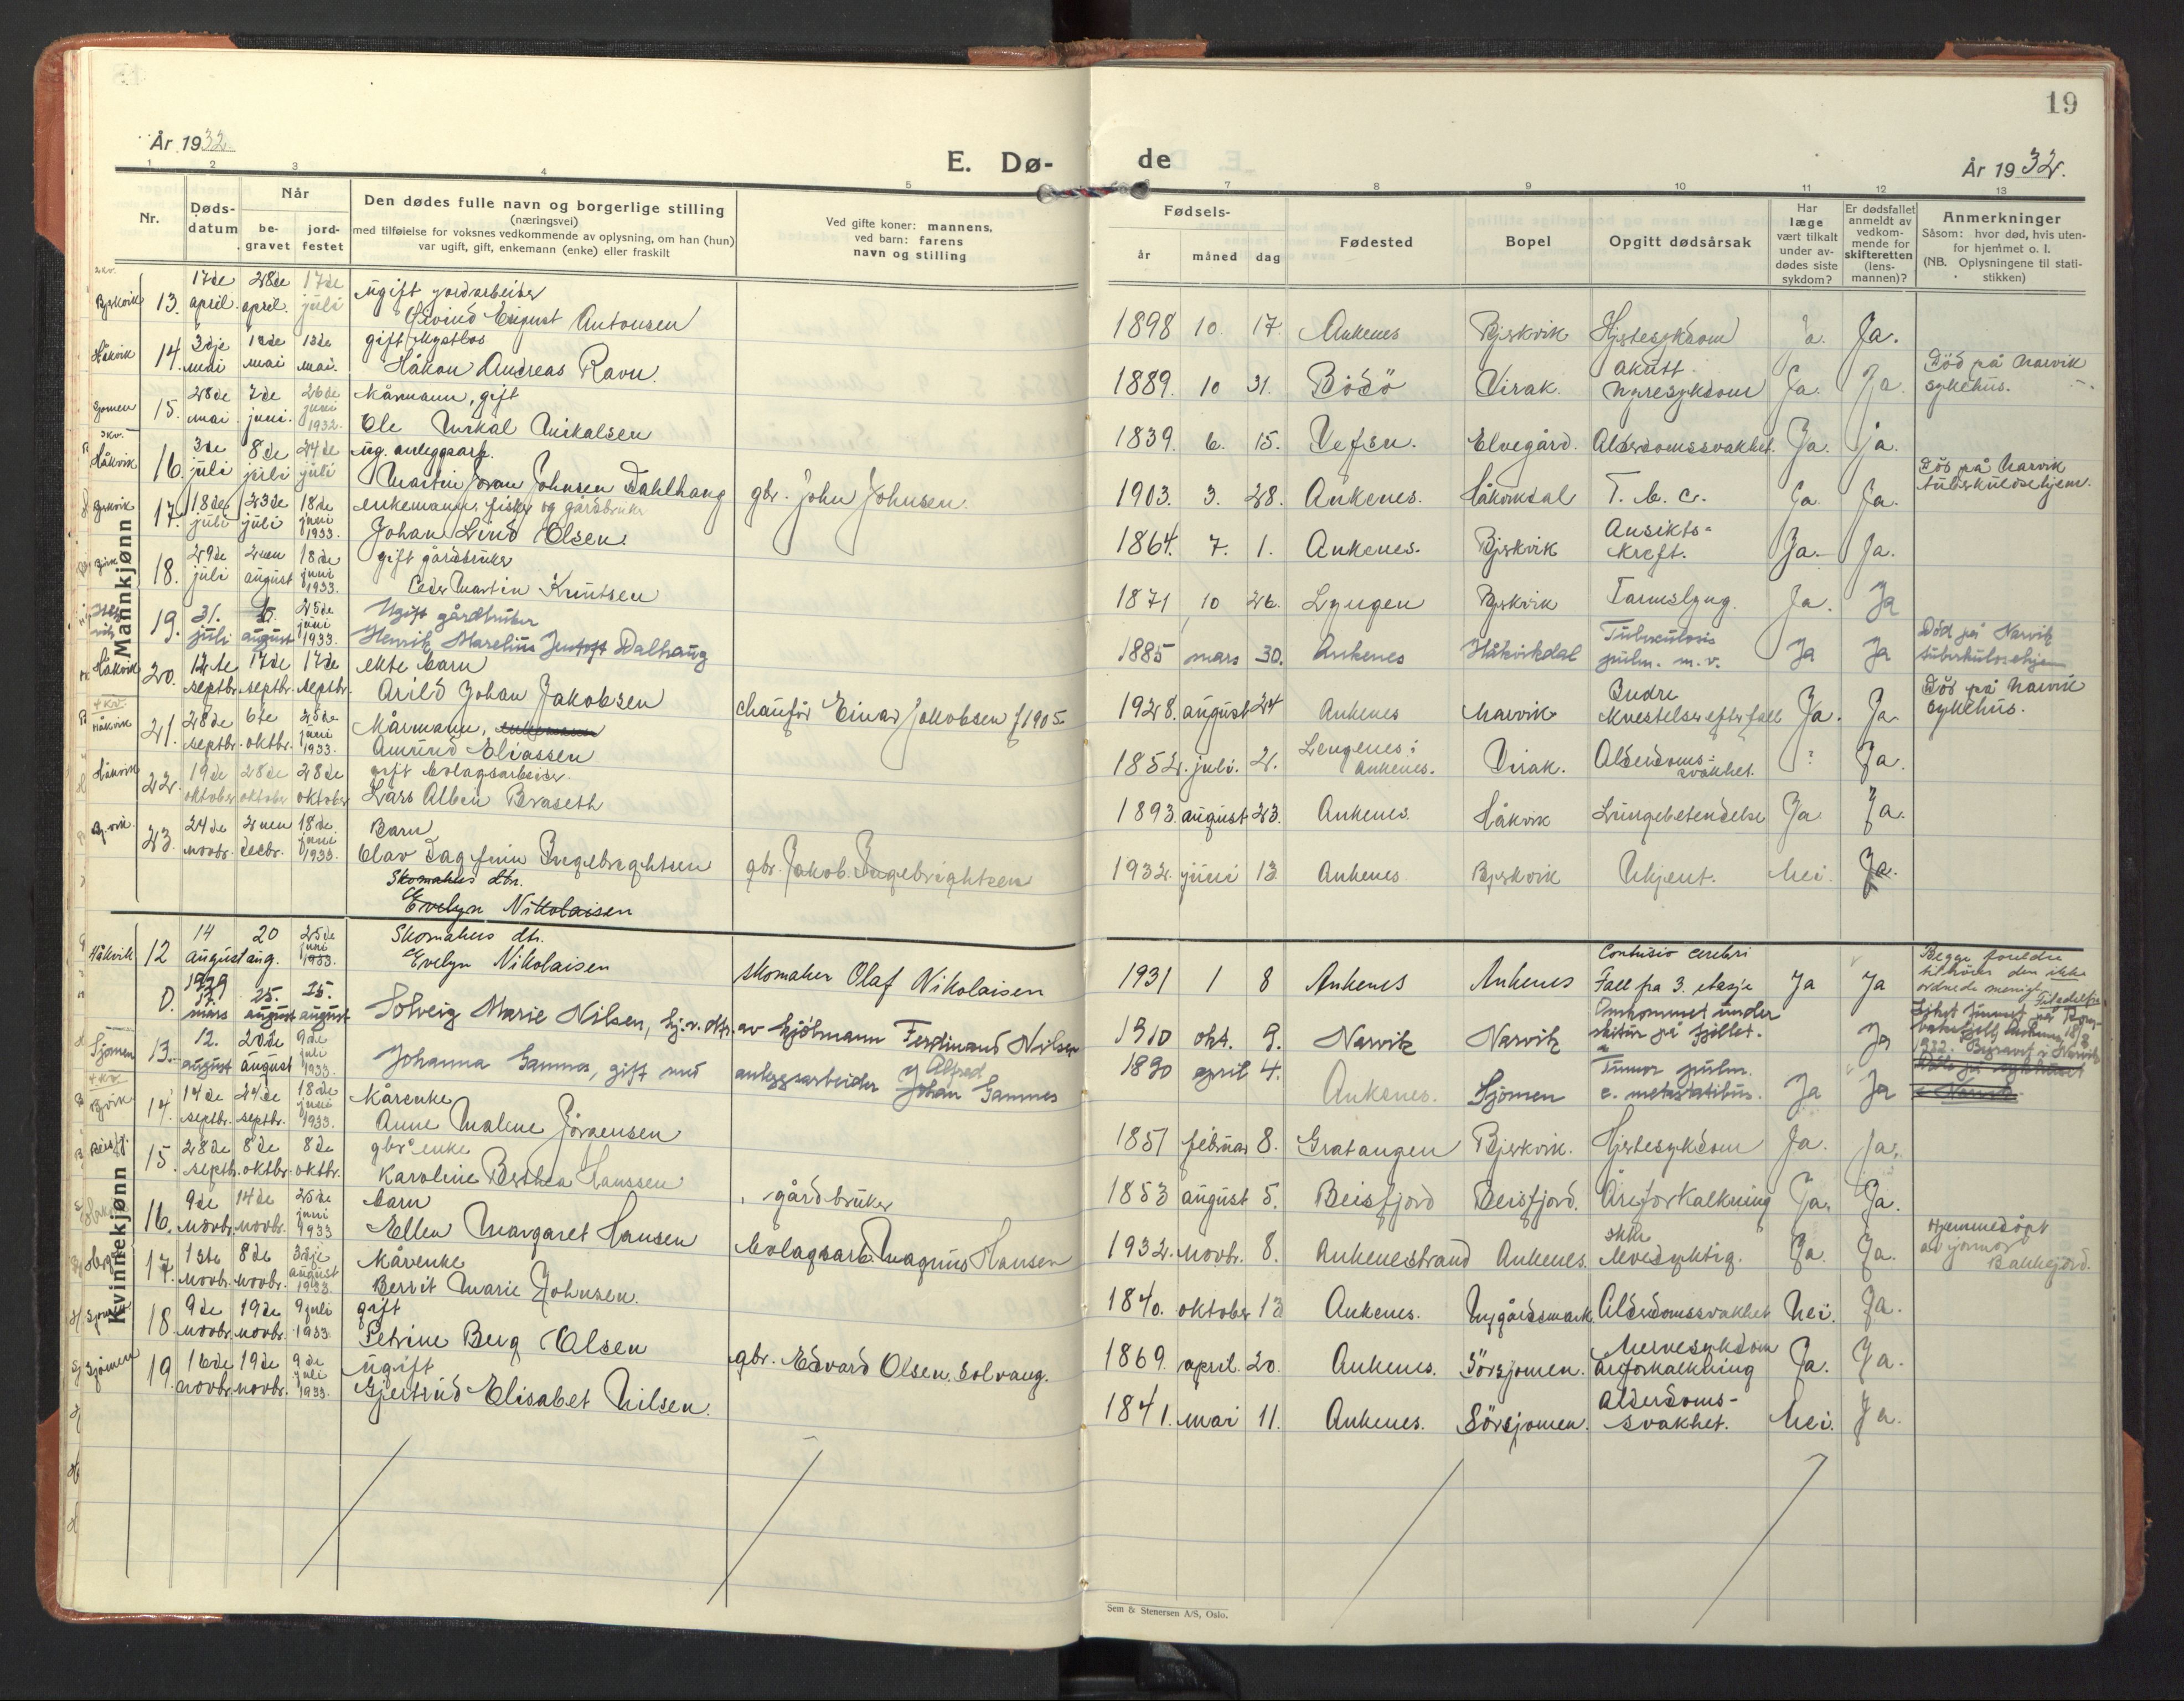 19
År 1932.
E. Dø-
de
År 1932.
1 2 3 4 5
7 8 9 10 11 12 13
Nr.
Døds-
datum
Når
be-
gravet
jord-
festet
Den dødes fulle navn og borgerlige stilling
(næringsvei)
med tilføielse for voksnes vedkommende av oplysning, om han (hun)
var ugift, gift, enkemann (enke) eller fraskilt
Ved gifte koner: mannens,
ved barn: farens
navn og stilling
Fødsels-
år måned dag
Fødested
Bopel
Opgitt dødsårsak
Har
læge
vært tilkalt
under av-
dødes siste
sykdom?
Er dødsfallet
anmeldt av
vedkom-
mende for
skifteretten
(lens-
mannen)?
Anmerkninger
Såsom: hvor død, hvis uten-
for hjemmet o. l.
(NB. Oplysningene til stati-
stikken)
Mannkjønn
Bjerkvik 13. 17de april 28de april. 17de juli
ugift jordarbeider
Eivind August Antonsen
1898 10. 17. Ankenes Bjerkvik Hjertesykdom Ja. Ja.
Håkvik 14. 3dje mai 12de mai 12de mai.
gift
Håkon Andreas Ravn.
1889. 10 31. Bödö Virak. akutt nyresykdom Ja. Ja.
Död på Narvik
sykehus.
Sjomen 15. 28de mai 7de juni. 26de juni 1932.
Kårmann, gift
Ole Mikal Mikalsen
1839. 6. 15. Vefsn. Elvegård. Alderdomssvakhet. Ja. ja.
3 kv.
Håkvik 16. 3de juli 8de juli 24de juli
ug. anleggsarb.
Martin Johan Johnsen Dahlhaug
gbr. John Johnsen.
1903. 3. 28. Ankenes. Håkvikdal T. b. c. Ja. Ja.
Död på Narvik
tuberkulosehjem.
Bjerkvik 17. 18de juli 23de juli 18de juni 1933.
enkemann, fisker og gårdbruker
Johan Lind Olsen.
1864. 7. 1. Ankenes. Bjerkvik Ansikts-
kreft. Ja. Ja.
18. 29de juli 2nen august 18de juni 1933.
gift gårdbruker
Peder Martin Knutsen
1871 10 26. Lyngen Bjerkvik Tarmslyng. Ja. Ja
19. 31. juli august 25de juni 1933.
Ugift gårdbruker
Henrik Marelius Dalhaug
1885 mars 30. Ankenes Håkvikdal Tuberculosis
pulm. m. v. Ja Ja
Död på Narvik
tuberkulosehjem
Håkvik 20. 12te septbr. 17de septbr. 17de septbr.
ekte barn
Arild Johan Jakobsen
chauför Einar Jakobsen f 1905.
1928. august 24 Ankenes Narvik Indre
kvestelser efter fall Ja. Ja.
Död på Narvik
sykehus.
4 kv.
Håkvik 21. 28de septbr. 6te oktbr. 25de juni 1933.
Kårmann, enkemann
Amund Eliassen
1852. juli. 2. Lengenes i
Ankenes. Virak. Alderdoms-
svakhet. ? Ja.
Håkvik 22. 19de oktober 28de oktober 28de oktober
gift bolagsarbeider.
Lars Albin Beraseth
1893. august 23. Ankenes. Håkvik Lungebetendelse Ja. Ja.
23. 24de novbr. 2nen decbr. 18de juni 1933.
Barn
Olav Dagfinn Ingebrigtsen
gbr. Jakob Ingebrigtsen
1932. juni 13 Ankenes Bjerkvik Ukjent. Nei. Ja.
Skomakers dtr.
Evelyn Nikolaisen
Kvinnekjønn
Håkvik 12 14 august 20 aug. 25de juni 1933.
Skomakers dtr.
Evelyn Nikolaisen
skomaker Olaf Nikolaisen
1931 1 8 Ankenes Ankenes Contusio cerebri
Fall fra 3. etasje Ja Ja
Begge foreldre
tilhører den ikke
ordnede menigh. Filadelfia
0. 1929 17. mars 25. august 25. august
Solveig Marie Nilsen, hj.v. dtr. av kjöbmann Ferdinand Nilsen
1910 okt. 9. Narvik Narvik Omkommet under
skitur på fjellet. Ja
1932. Begravet i Narvik
Sjomen 13. 12. august 20de august 9de juli 1933.
Johanna Gamnes, gift med anleggsarbeider Johan Alfred Gamnes
1890 april 4. Ankenes. Sjömen Tumor pulm.
c. metastatibus. Ja Ja
4 kv.
14. 14de septbr. 24de septbr. 18de juni 1933.
Kårenke
Anne Malene Jörgensen
1851 februar 8. Gratangen Bjerkvik. Hjertesykdom Ja. Ja.
Beisfj. 15. 28de septb. 8de oktbr. 8de oktbr.
gbr. enke
Karoline Berthea Hanssen
1853 august 5. Beisfjord Beisfjord. Åreforkalkning Ja. Ja.
16. 9de novbr. 14de novbr. 25de juni 1933
barn
Ellen Margaret Hansen
gårdbruker
bolagsarb. Magnus Hansen
1932. novbr. 8. Ankenesstrand Ankenes. Ja. Ja.
Hjemmedöpt
av jormor
Bakkejord.
17. 1ste novbr. 8de novbr. 3dje august 1933.
Kårenke
Berit Marie Johnsen.
1840. oktober 13 Ankenes. Nygårdsmark Alderdomssvakhet Nei. Ja.
18. 9de novbr. 19de novbr. 9 juli 1933.
gift
Petrine Berg Olsen
gbr. Edvard Olsen, Solvang.
1869. april. 20. Ankenes. Sörsjomen. Nervesykdom
åreforkalkning Ja. Ja.
Sjömen 19. 16de novbr. 19de novbr. 9de juli 1933.
ugift
Gjertrud Elisabet Nilsen.
1841. mai 11. Ankenes. Sörsjomen. Alderdoms-
svakhet. Nei. Ja.
Sem & Stenersen A/S, Oslo.